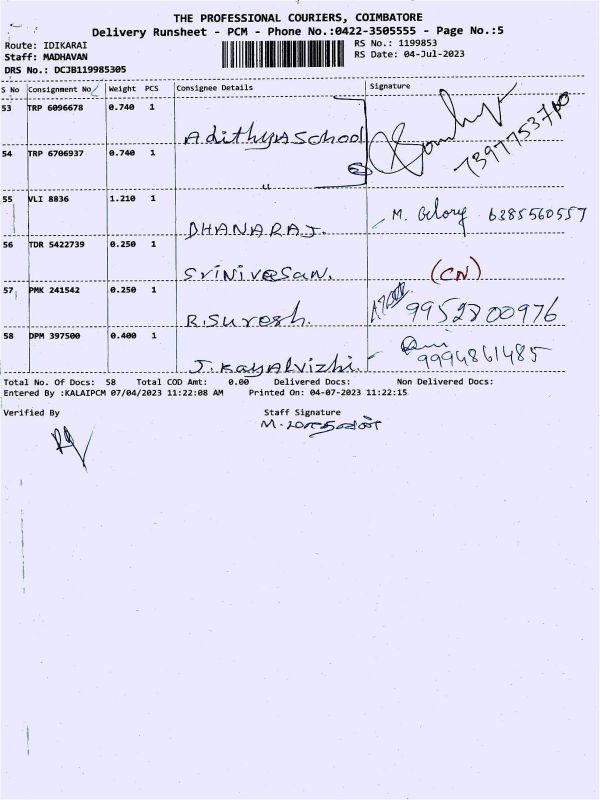 THE PROFESSIONAL COURIERS, COIMBATORE
Delivery Runsheet - PCM - Phone No.:0422-3505555 - Page No.:5
Route: IDIKARAI RS No.: 1199853
Staff: MADHAVAN RS Date: 04-Jul-2023
DRS No.: DCJB119985305
S No Consignment No Weight PCS Consignee Details Signature
53 TRP 6096678 0.740 1 Adithya School 7397753710
54 TRP 6706937 0.740 1 2
55 VLI 8836 1.210 1 DHANARAJ. M. Glory 6385560557
56 TDR 5422739 0.250 1 Srinivasan. (CN)
57 PMK 241542 0.250 1 R.Suresh. 9952800976
58 DPM 397500 0.400 1 J.Kayalvizhi. 9994861485
Total No. Of Docs: 58 Total COD Amt: 0.00 Delivered Docs: Non Delivered Docs:
Entered By :KALAIPCM 07/04/2023 11:22:08 AM Printed On: 04-07-2023 11:22:15
Verified By Staff Signature
M. மாதவன்